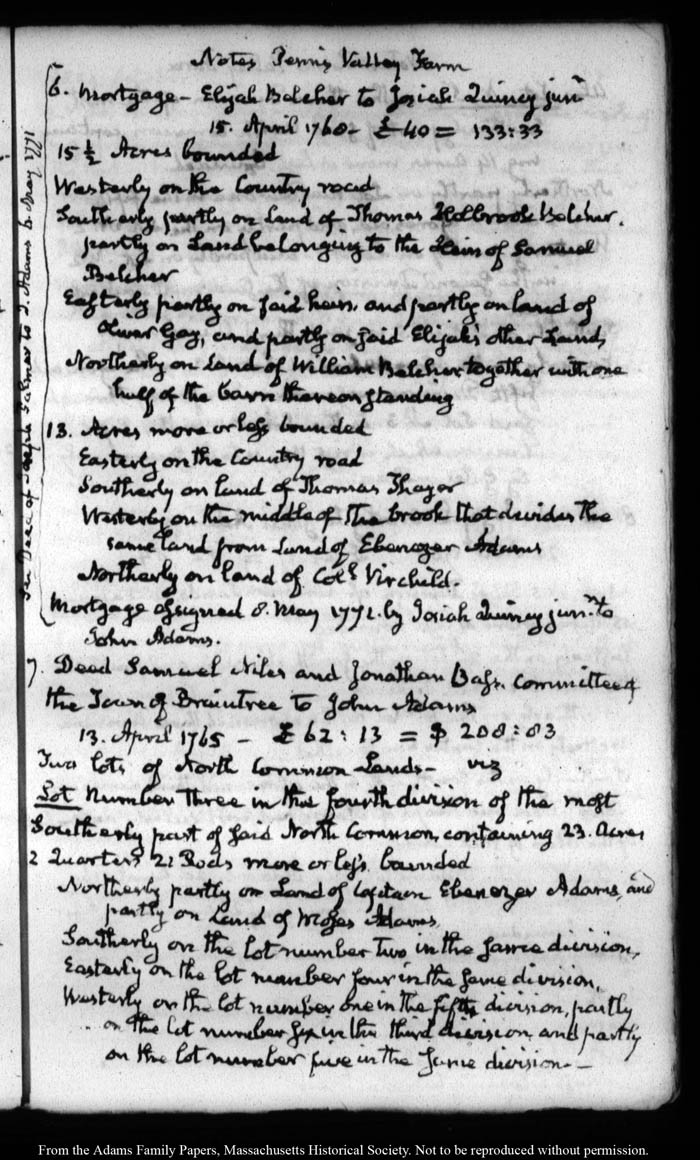 Notes Penns Valley Farm
6. Mortgage - Elijah Belcher to Josiah Quincy junr
15. April 1760 - £40 = 133:33
15 ½ Acres bounded
Westerly on the Country road
Southerly partly on land of Thomas Holbrook Belcher.
partly on Land belonging to the Heirs of Samuel
Belcher
Easterly partly on said heirs. and partly on land of
Oliver Gay, and partly on said Elijah's other Land,
Northerly on Land of William Belcher together with one
half of the barn thereon standing
13. Acres more or less bounded
Easterly on the Country road
Southerly on land of Thomas Thayer
Westerly on the middle of the brook that divides the
same land from Land of Ebenezer Adams
Northerly on land of Coll Virchild.
Mortgage assigned 8. May 1771. by Josiah Quincy junr. to
John Adams.
See Deed of Joseph Palmer to J. Adams 6. May 1771
7. Deed Samuel Niles and Jonathan Bass. Committee of
the Town of Braintree to John Adams
13. April 1765 - £ 62 : 13 = $ 208 : 83
Two lots of North Common Lands - viz
Lot Number three in the fourth division of the most
Southerly part of said North Common, containing 23. Acres
2 Quarters 21 Rods more or less. bounded
Northerly partly on Land of Captain Ebenezer Adams, and
partly on Land of Moses Adams,
Southerly on the lot number two in the same division,
Easterly on the lot number four in the same division,
Westerly on the lot number one in the fifth division, partly
on the lot number six in the third division and partly
on the lot number five in the same division. -
From the Adams Family Papers, Massachusetts Historical Society. Not to be reproduced without permission.